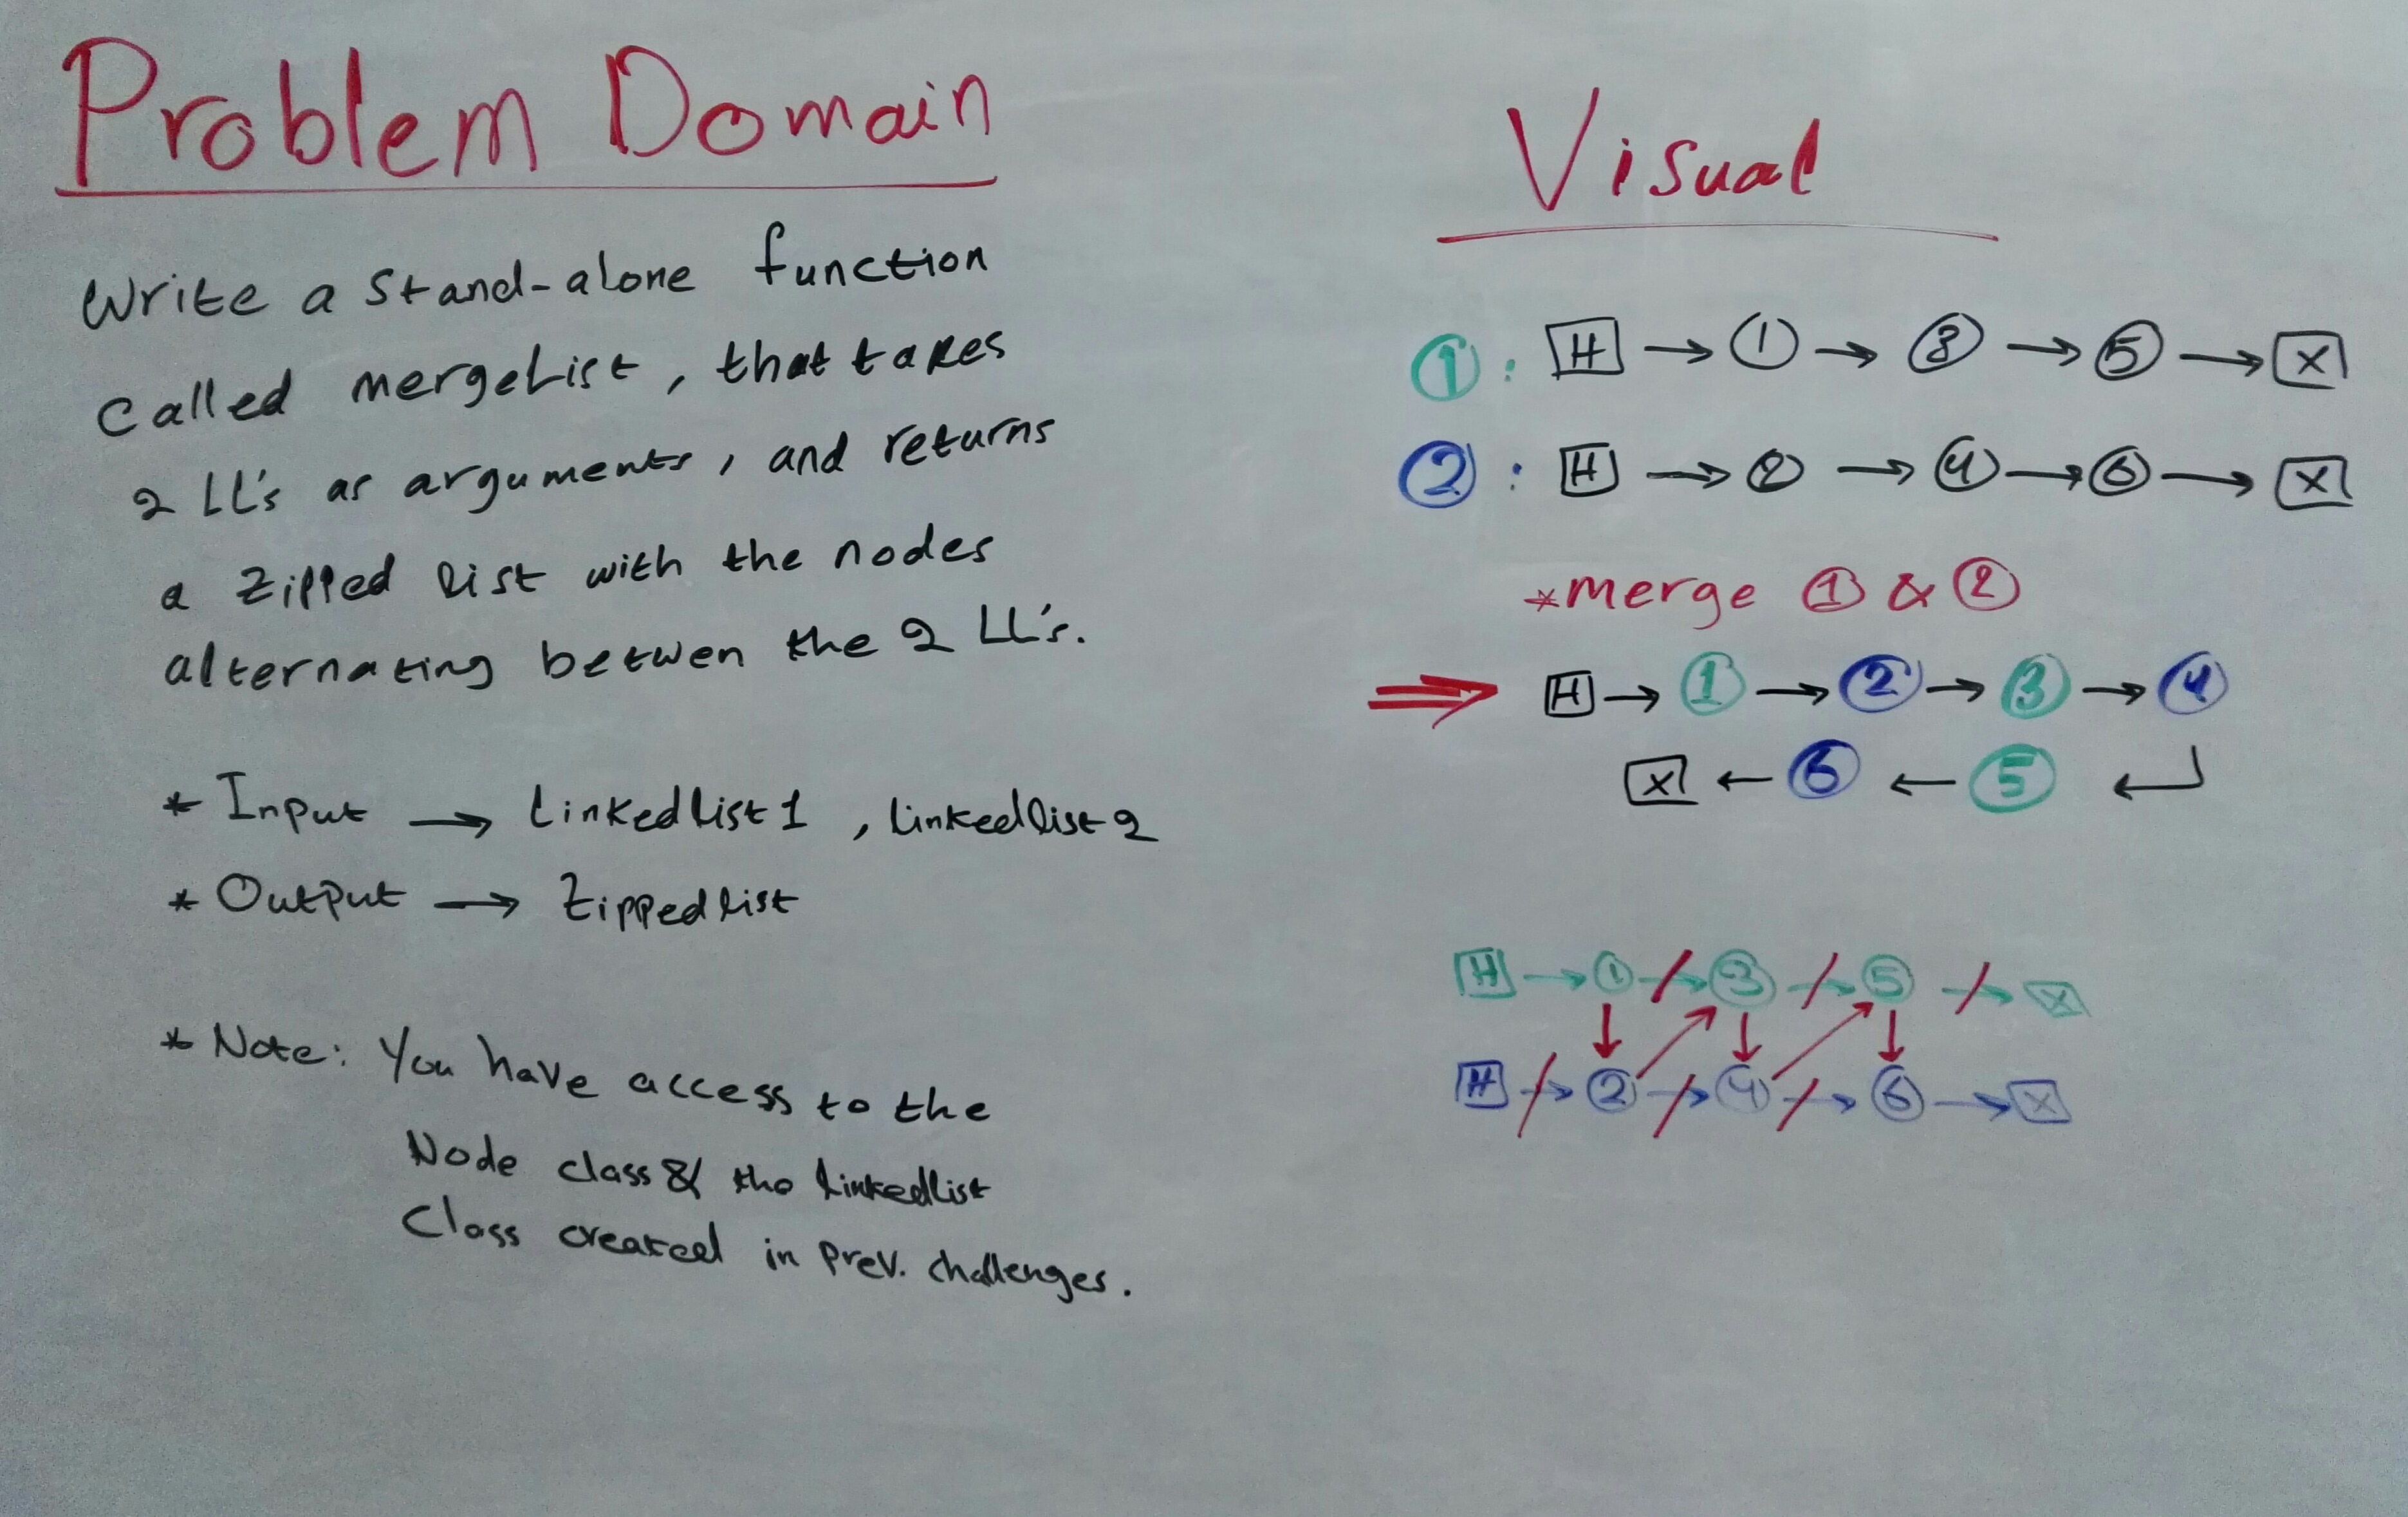 Problem Domain
Write a stand-alone function
called mergeList, that takes
2 LL's as arguments, and returns
a zipped list with the nodes
alternating betwen the 2 LL's.
* Input → linkedlist1 , linkedlist2
* Output → Zippedlist
* Note: You have access to the
Node class & the linkedlist
Class created in prev. challenges.
Visual
1 : H → 1 → 3 → 5 → X
2 : H → 2 → 4 → 6 → X
*merge 1 & 2
⇒ H → 1 → 2 → 3 → 4
X ← 6 ← 5 ↵
H → 1 → 3 → 5 → X
H → 2 → 4 → 6 → X